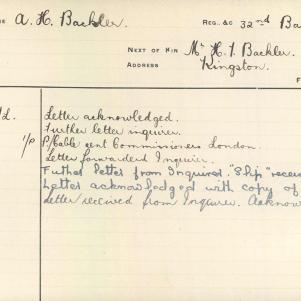 A. H. Backler. REG. &C 32nd Ba
NEXT OF KIN Mr H. I Backler.
ADDRESS Kingston.
Letter acknowledged.
Further letter inquirer.
1/P P/Cable sent Commissioners London.
Letter forwarded Inquirer.
Futher letter from Inquirer "Slip" recei
Letter acknowledged with copy of
Letter received from Inquirer. Acknow